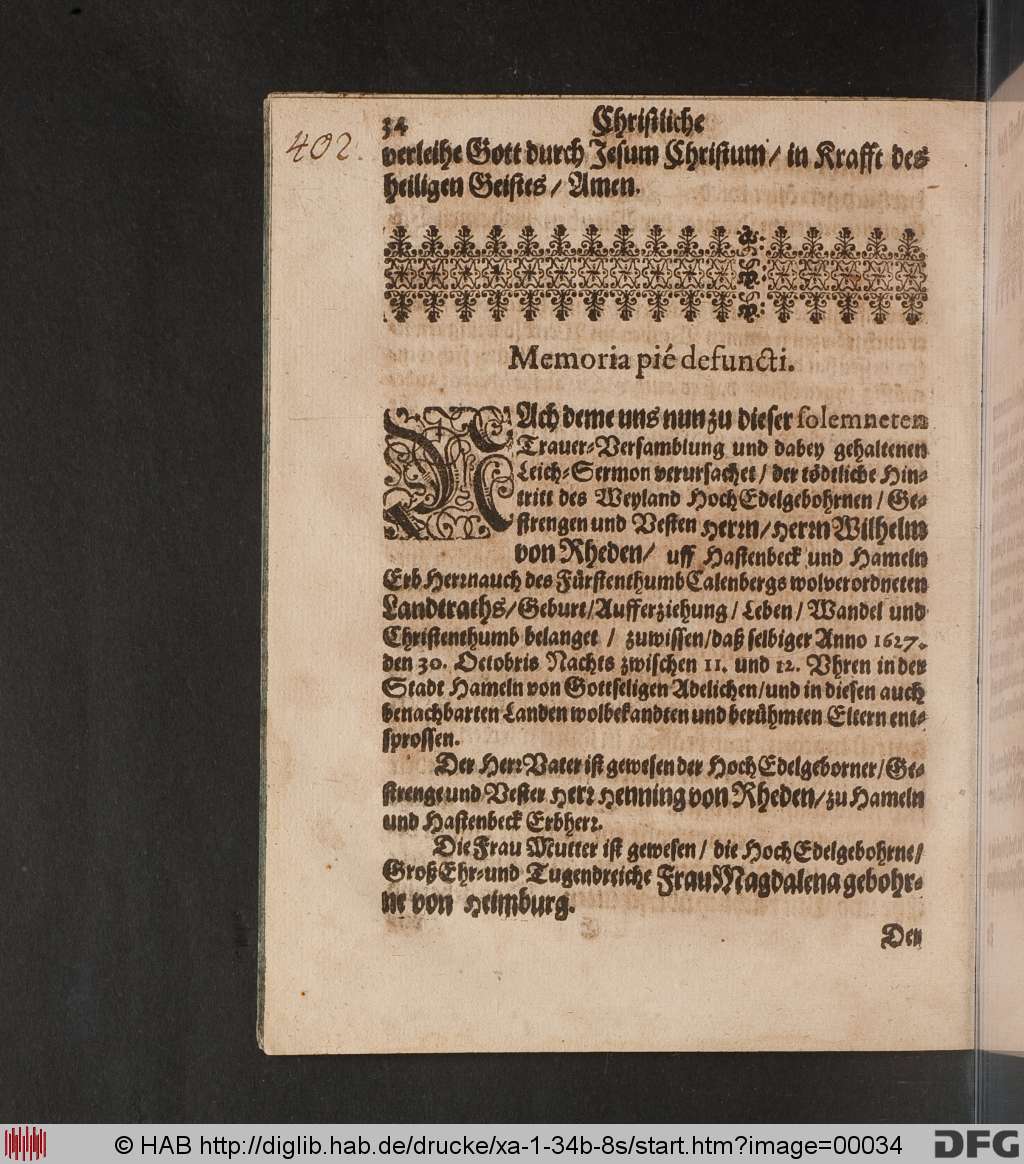 402.
34 Christliche
verleihe Gott durch Jesum Christum / in Krafft des
heiligen Geistes / Amen.
Memoria pié defuncti.
NAch deme uns nun zu dieser solemneten
Trauer-Versamblung und dabey gehaltenen
Leich-Sermon verursachet / der tödtliche Hin-
tritt des Weyland HochEdelgebohrnen / Ge-
strengen und Vesten Herrn / Herrn Wilhelm
von Rheden / uff Hastenbeck und Hameln
Erb Herrn auch des Fürstenthumb Calenbergs wolverordneten
Landtraths / Geburt / Aufferziehung / Leben / Wandel und
Christenthumb belanget / zuwissen / daß selbiger Anno 1627.
den 30. Octobris Nachts zwischen 11. und 12. Vhren in der
Stadt Hameln von Gottseligen Adelichen / und in diesen auch
benachbarten Landen wolbekandten und berühmten Eltern ent-
sprossen.
Der Herr Vater ist gewesen der HochEdelgeborner / Ge-
strenge und Vester Herr Henning von Rheden / zu Hameln
und Hastenbeck Erbherr.
Die Frau Mutter ist gewesen / die HochEdelgebohrne /
Groß Ehr-und Tugendreiche Frau Magdalena gebohr-
ne von Heimburg.
Den
© HAB http://diglib.hab.de/drucke/xa-1-34b-8s/start.htm?image=00034
DFG